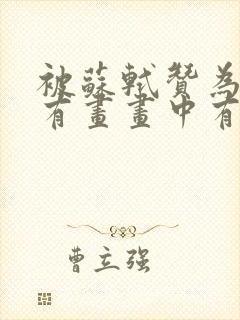 被蘇軾贊為
有畫畫中有
曹立强